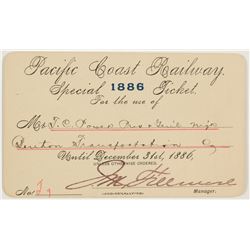 Pacific Coast Railway.
Special 1886 Ticket.
For the use of
Mr T. C. Power Pres & Genl Mgr
Benton Transportation Co
Until December 31st, 1886,
UNLESS OTHERWISE ORDERED.
No.
Manager.